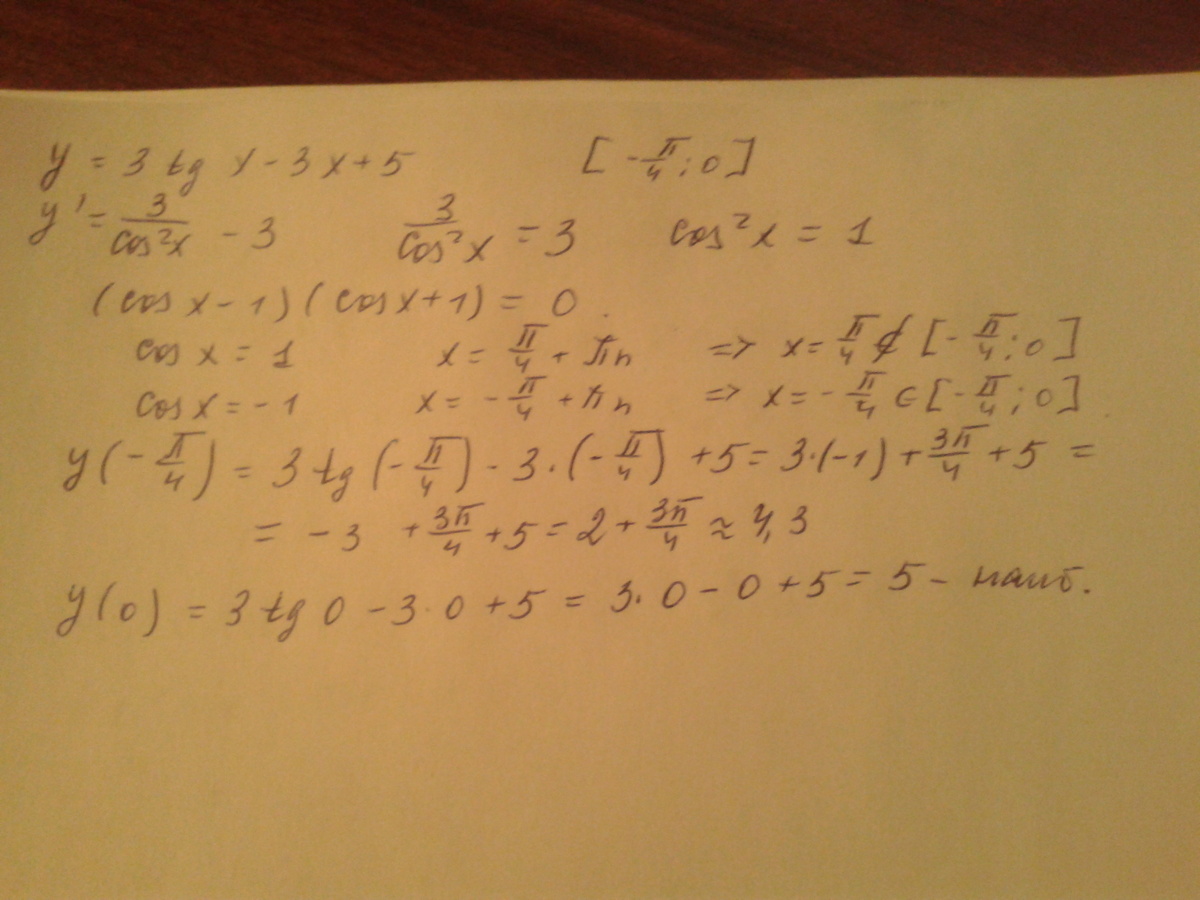 y = 3 tg x - 3x + 5 [-π/4; 0]
y' = 3/cos²x - 3 3/cos²x = 3 cos²x = 1
(cos x - 1)(cos x + 1) = 0.
cos x = 1 x = π/4 + πn => x = π/4 ∉ [-π/4; 0]
cos x = -1 x = -π/4 + πn => x = -π/4 ∈ [-π/4; 0]
y(-π/4) = 3 tg(-π/4) - 3·(-π/4) + 5 = 3·(-1) + 3π/4 + 5 =
= -3 + 3π/4 + 5 = 2 + 3π/4 ≈ 4,3
y(0) = 3 tg 0 - 3·0 + 5 = 3·0 - 0 + 5 = 5 - наиб.